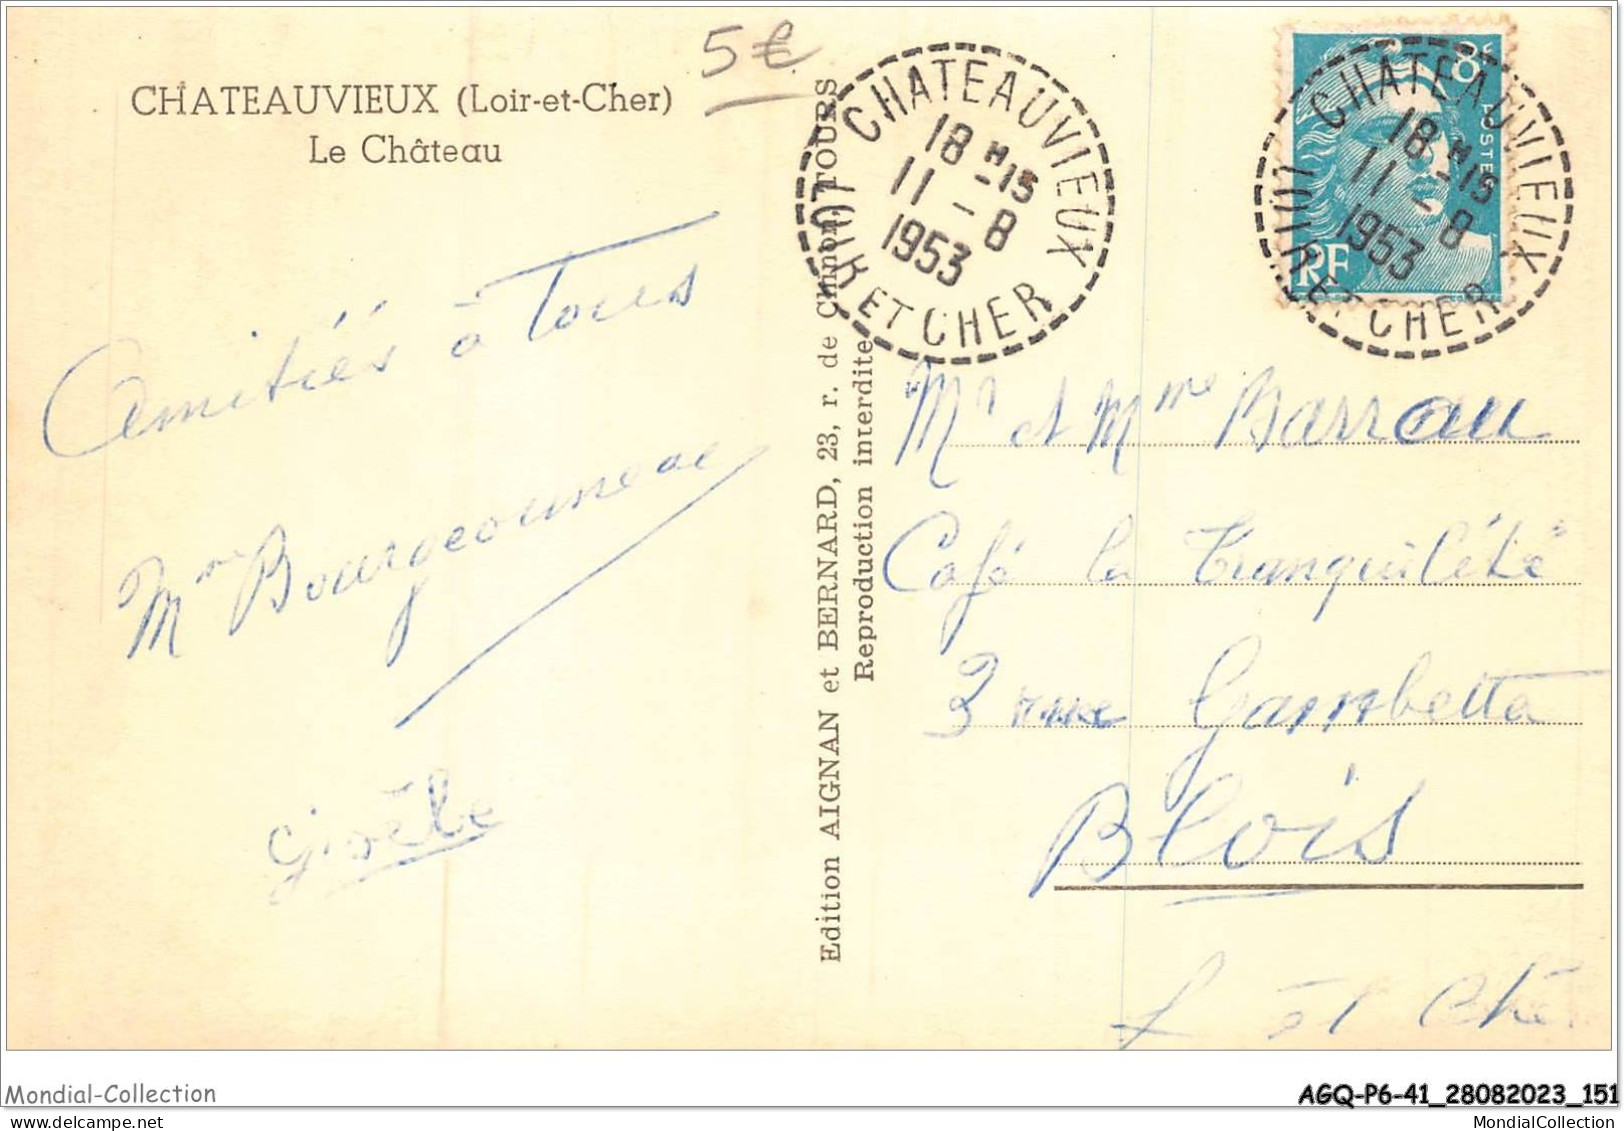 5€
CHATEAUVIEUX (Loir-et-Cher)
Le Château
Amitiés à Tous
Mme Bourgeonneau
Gisèle
Edition AIGNAN et BERNARD, 23, r. de Chinon, TOURS
Reproduction interdite
CHATEAUVIEUX
18 H -15
11 - 8
1953
LOIR ET CHER
8F
POSTES
RF
CHATEAUVIEUX
18 H -15
11 - 8
1953
LOIR ET CHER
Mr et Mme Barrau
Café la Tranquilété
3 rue Gambetta
Blois
L et Che
Mondial-Collection
AGQ-P6-41_28082023_151
MondialCollection
www.delcampe.net